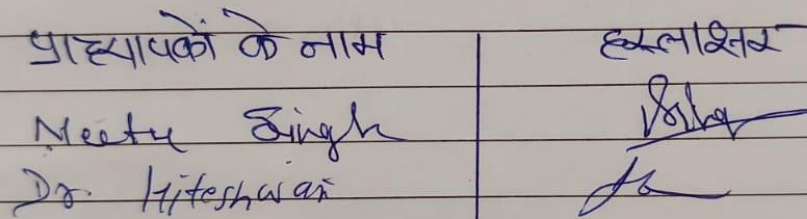 प्राध्यापकों के नाम हस्ताक्षर
Neetu Singh
Dr. Hiteshwari